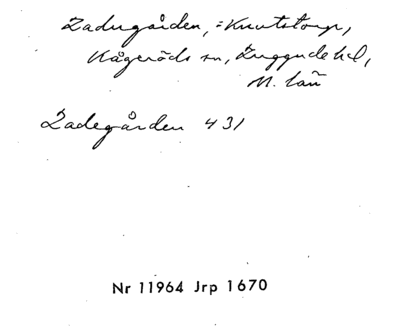 Ladugården, = Knutstorp,
Kågeröds sn, Luggude hd,
M. län
Ladegården 431
Nr 11964 Jrp 1670